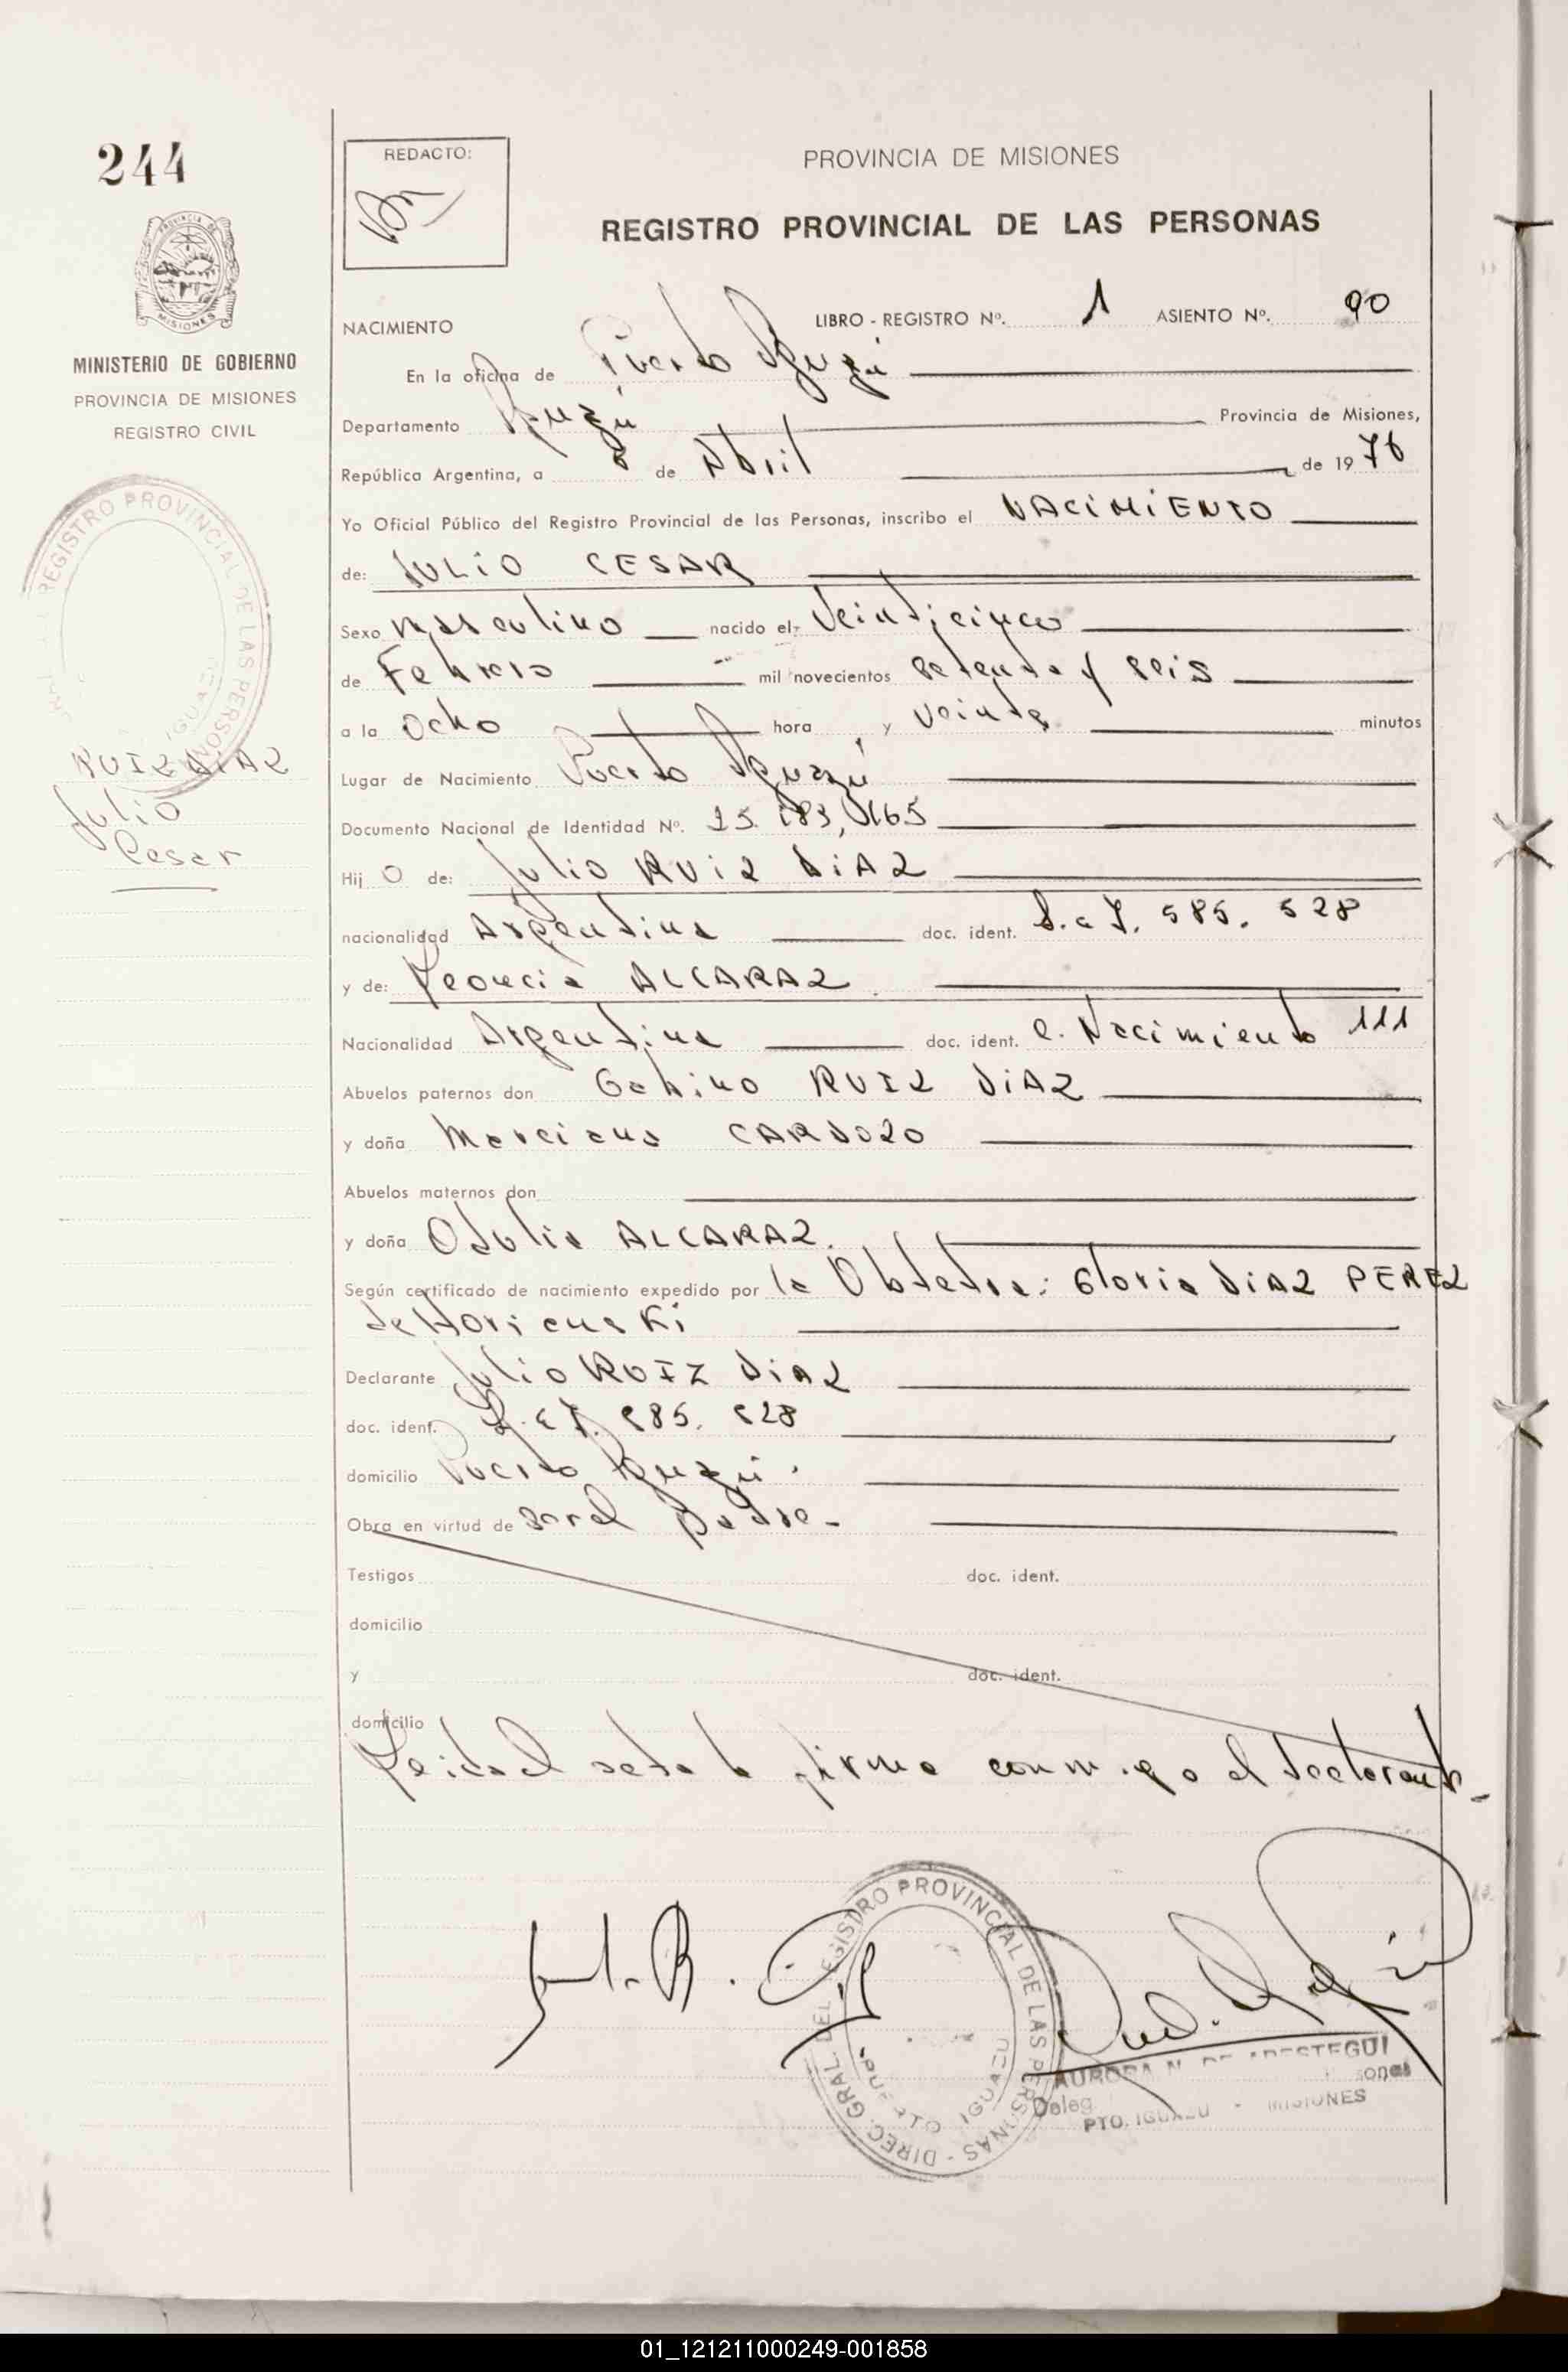 244
PROVINCIA DE
MISIONES
MINISTERIO DE GOBIERNO
PROVINCIA DE MISIONES
REGISTRO CIVIL
REGISTRO PROVINCIAL DE LAS PERSONAS
IGUAZU
RUIZ DiAZ
Julio
Cesar
REDACTO:
PROVINCIA DE MISIONES
REGISTRO PROVINCIAL DE LAS PERSONAS
NACIMIENTO LIBRO - REGISTRO Nº. 1 ASIENTO Nº. 90
En la oficina de Puerto Iguazú
Departamento Iguazú Provincia de Misiones,
República Argentina, a 8 de Abril de 1976
Yo Oficial Público del Registro Provincial de las Personas, inscribo el NACIMIENTO
de: JULIO CESAR
Sexo Masculino nacido el Veinticinco
de Febrero mil novecientos setenta y seis
a la Ocho hora y veinte minutos
Lugar de Nacimiento Puerto Iguazú
Documento Nacional de Identidad Nº. 25.183,
Hij O de: Julio RUIZ DiAZ
nacionalidad Argentina doc. ident. 585. 528
y de: Leoncia ALCARAZ
Nacionalidad Argentina doc. ident. C. Nacimiento 111
Abuelos paternos don Gabino RUIZ DiAZ
y doña Marciana CARDOZO
Abuelos maternos don
y doña Odulia ALCARAZ.
Según certificado de nacimiento expedido por la Obstetra: Gloria DiAZ PEREZ
de
Declarante Julio RUIZ DiAZ
doc. ident. 585. 528
domicilio Puerto Iguazú.
Obra en virtud de ser el padre-
Testigos doc. ident.
domicilio
y doc. ident.
domicilio
Leida el acta la firma conmigo el declarante-
DIREC. GRAL. DEL REGISTRO PROVINCIAL DE LAS PERSONAS
PUERTO IGUAZU
AURORA N. DE ARESTEGUI
Deleg
PTO. IGUAZU - MISIONES
01_121211000249-001858